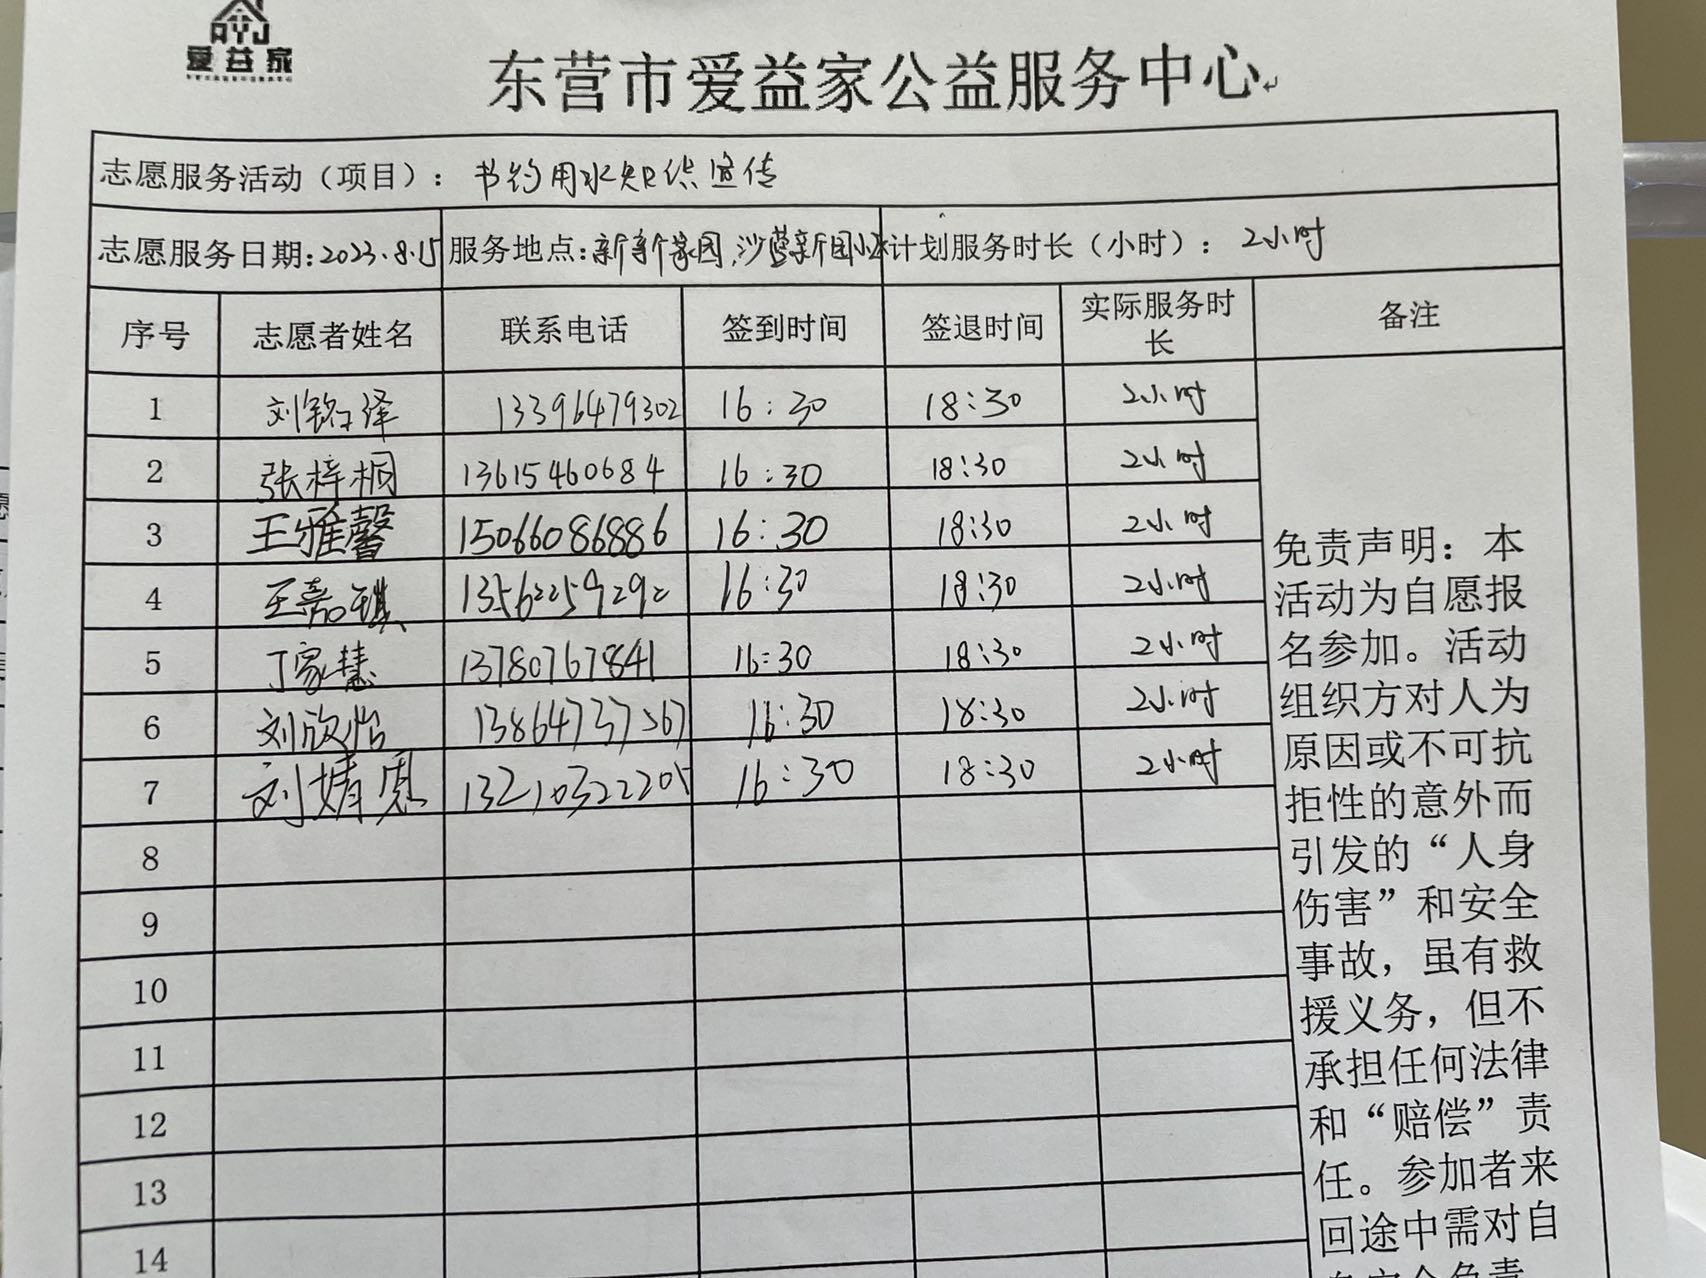 AYJ
爱益家
东营市爱益家公益服务中心
志愿服务活动（项目）：节约用水知识宣传
志愿服务日期:2023.8.15 服务地点:新新家园,沙营新园小区 计划服务时长（小时）：2小时
序号 志愿者姓名 联系电话 签到时间 签退时间 实际服务时长 备注
1 刘铭泽 13396479302 16:30 18:30 2小时
2 张梓桐 13615460684 16:30 18:30 2小时
3 王雅馨 15066086886 16:30 18:30 2小时
4 王嘉祺 13562259292 16:30 18:30 2小时
5 丁家慧 13780767841 16:30 18:30 2小时
6 刘欣怡 13864737367 16:30 18:30 2小时
7 刘婧恩 13210322205 16:30 18:30 2小时
8
9
10
11
12
13
14
免责声明：本
活动为自愿报
名参加。活动
组织方对人为
原因或不可抗
拒性的意外而
引发的“人身
伤害”和安全
事故，虽有救
援义务，但不
承担任何法律
和“赔偿”责
任。参加者来
回途中需对自